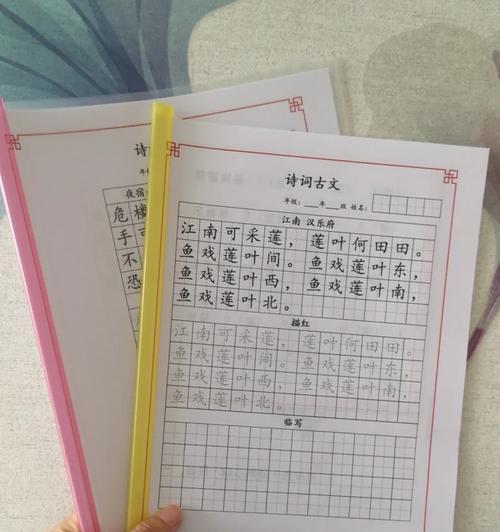 诗词古文
年级：___年___班 姓名：
江南 汉乐府
江南可采莲，莲叶何田田。
鱼戏莲叶间。鱼戏莲叶东，
鱼戏莲叶西，鱼戏莲叶南，
鱼戏莲叶北。
描红
江南可采莲，莲叶何田田。
鱼戏莲叶间。鱼戏莲叶东，
鱼戏莲叶西，鱼戏莲叶南，
鱼戏莲叶北。
临写
诗
年级
夜宿
危楼
手可
不
恐